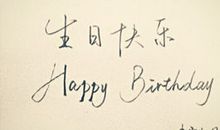 生日快乐
Happy Birthday